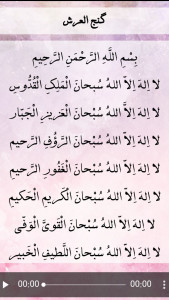 گنج العرش
بِسْمِ اللَّهِ الرَّحْمَنِ الرَّحِيمِ
لا اِلهَ اِلاّ اللهُ سُبحانَ الْمَلِكِ الْقُدُّوسِ
لا اِلهَ اِلاّ اللهُ سُبحانَ الْعَزيزِ الْجَبّار
لا اِلهَ اِلاّ اللهُ سُبْحانَ الرَّؤُفِ الرَّحيم
لا اِلهَ اِلاّ اللهُ سُبْحانَ الْغَفُورِ الرَّحيم
لا اِلهَ اِلاّ اللهُ سُبْحانَ الْكَريمِ الْحَكيم
لا اِلهَ اِلاّ اللهُ سُبْحانَ الْقَوِىِّ الْوَفِّى
لا اِلهَ اِلاّ اللهُ سُبْحانَ اللَّطيفِ الْخَبير
00:00 00:00